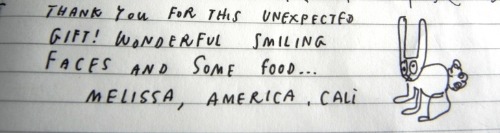 THANK YOU FOR THIS UNEXPECTED
GIFT! WONDERFUL SMILING
FACES AND SOME FOOD...
MELISSA, AMERICA, CALI